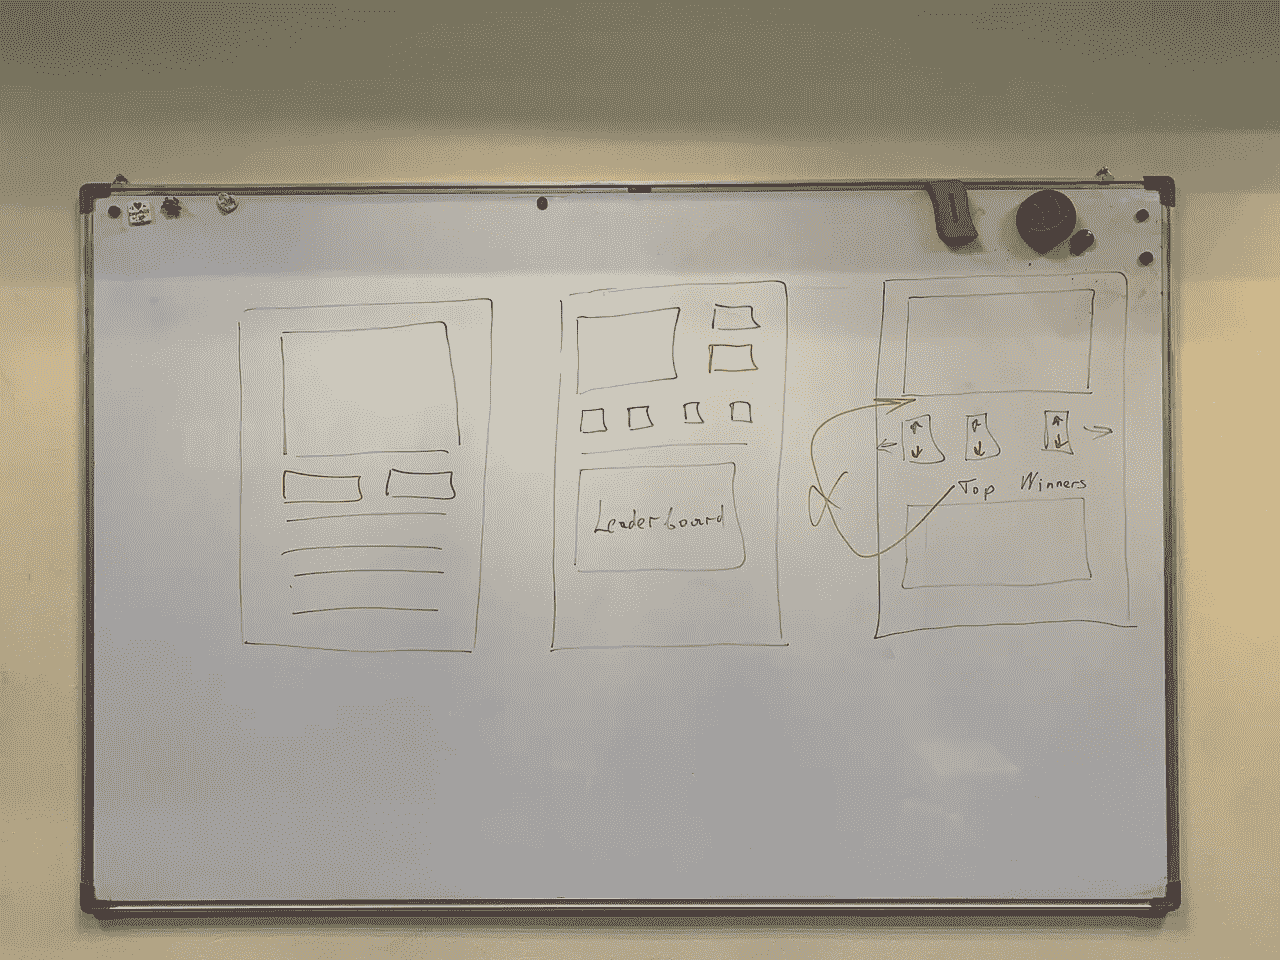 Leaderboard
Top Winners